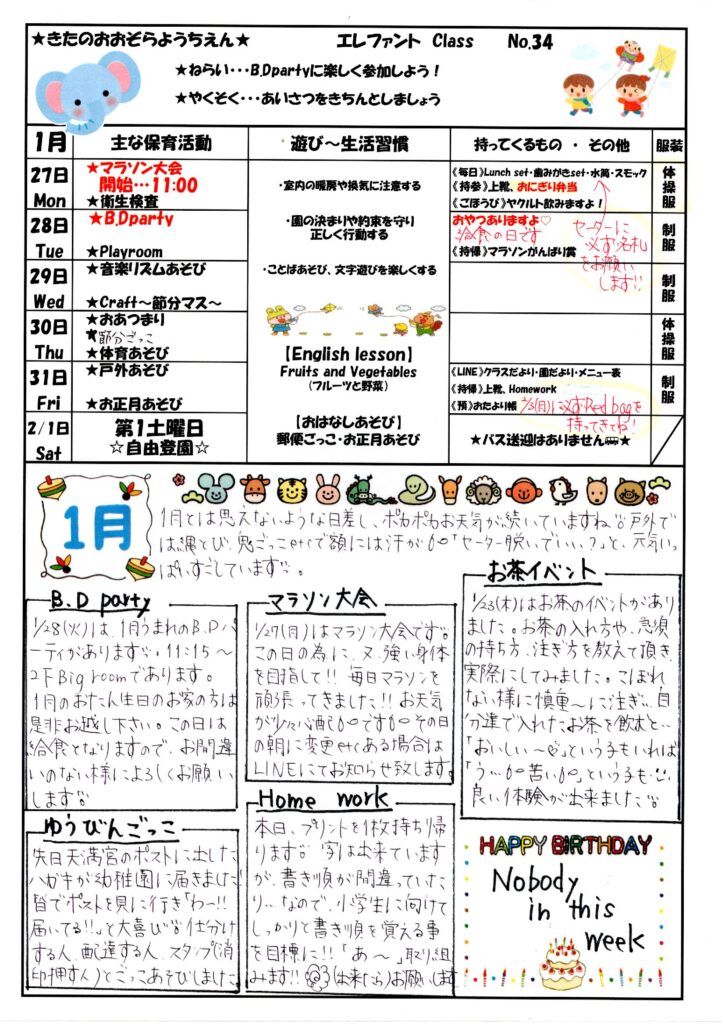 ★きたのおおぞらようちえん★ エレファント Class No.34
★ねらい・・・B.Dpartyに楽しく参加しよう！
★やくそく・・・あいさつをきちんとしましょう
1月 主な保育活動 遊び～生活習慣 持ってくるもの ・ その他 服装
27日 Mon
★マラソン大会
開始…11:00
★衛生検査
28日 Tue
★B.Dparty
★Playroom
29日 Wed
★音楽リズムあそび
★Craft～節分マス～
30日 Thu
★おあつまり
★節分ごっこ
★体育あそび
31日 Fri
★戸外あそび
★お正月あそび
2/1日 Sat
第1土曜日
☆自由登園☆
・室内の暖房や換気に注意する
・園の決まりや約束を守り
正しく行動する
・ことばあそび、文字遊びを楽しくする
【English lesson】
Fruits and Vegetables
(フルーツと野菜)
【おはなしあそび】
郵便ごっこ・お正月あそび
《毎日》Lunch set・歯みがきset・水筒・スモック
《持参》上靴、おにぎり弁当
《ごほうび》ヤクルト飲みますよ！
おやつありますよ♡
給食の日です
《持帰》マラソンがんばり賞
セーターに
必ず名札
をお願い
します!!
《LINE》クラスだより・園だより・メニュー表
《持帰》上靴、Homework
《預》おたより帳
2/3(月)に必ずRed bagを
持ってきてね!
★バス送迎はありません★
体操服
制服
制服
体操服
制服
1月
1月とは思えないような日差し、ポカポカお天気が続いていますね。戸外で
は縄とび、鬼ごっこetcで額には汗が「セーター脱いでいい?」と、元気いっ
ぱいすごしています。
B.D party
1/28(火)は、1月うまれのB.Dパ
ーティがあります。11:15～
2F Big roomであります。
1月のおたん生日のお家の方は
是非お越し下さい。この日は
給食となりますので、お間違
いのない様によろしくお願い
します。
マラソン大会
1/27(月)はマラソン大会です。
この日の為に、又、強い身体
を目指して!!毎日マラソンを
頑張ってきました!!お天気
が少々心配ですその日
の朝に変更etcある場合は
LINEにてお知らせ致します。
お茶イベント
1/23(木)はお茶のイベントがあり
ました。お茶の入れ方や、急須
の持ち方、注ぎ方を教えて頂き、
実際にしてみました。こぼれ
ない様に慎重～に注ぎ…自
分達で入れたお茶を飲むと…
「おいしい～」という子もいれば
「う…苦い」という子も
良い体験が出来ました。
ゆうびんごっこ
先日天満宮のポストに出した
ハガキが幼稚園に届きました
皆でポストを見に行き「わー!!
届いてる!!」と大喜び。仕分け
する人、配達する人、スタンプ(消
印押す人)とごっこあそびしました。
Home work
本日、プリントを1枚持ち帰
ります。字は出来ています
が、書き順が間違っていた
り…なので、小学生に向けて
しっかりと書き順を覚える事
を目標に!!「あ～」取り組
みます!!(出来たら)お願いします
HAPPY BIRTHDAY
Nobody
in this
week